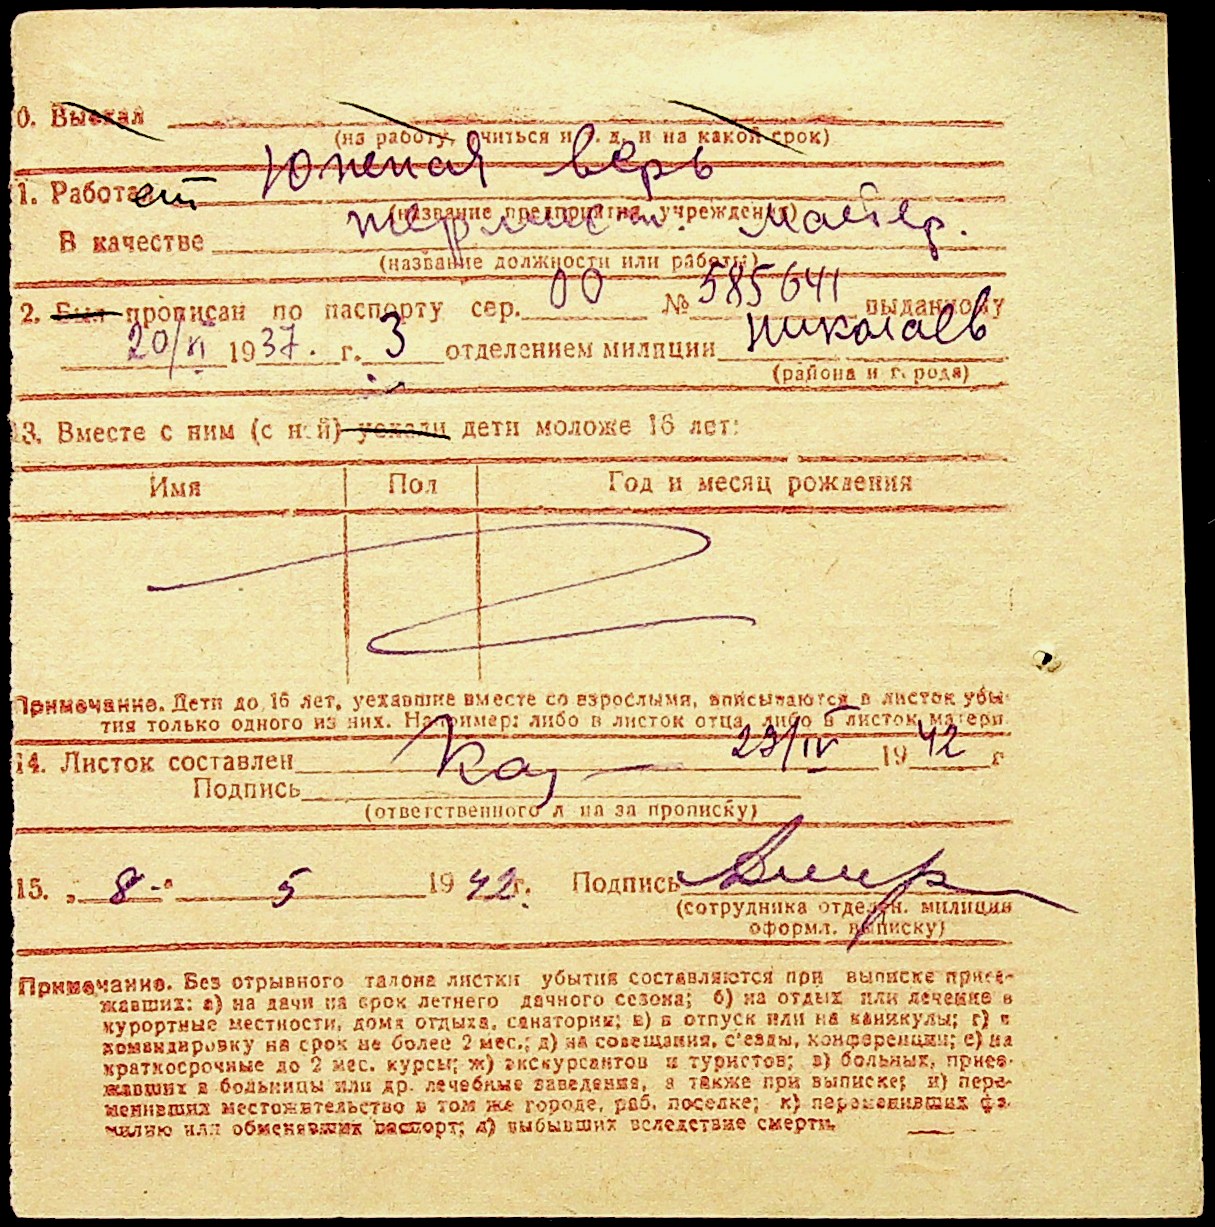 0. Выехал
(на работу, учиться и т. д. и на какой срок)
Южная верь
1. Работает
(название предприятия, учреждения)
В качестве
(название должности или работы)
2. Был прописан по паспорту сер. 00 № 585641 выданному
20/VI 1937. г. 3 отделением милиции Николаев
(района и города)
13. Вместе с ним (с ней) уехали дети моложе 16 лет:
Имя Пол Год и месяц рождения
Примечание. Дети до 16 лет, уехавшие вместе со взрослыми, вписываются в листок убы-
тия только одного из них. Например: либо в листок отца, либо в листок матери.
14. Листок составлен 23/IV 1942 г
Подпись
(ответственного лица за прописку)
15. „8-“ 5 1942 г. Подпись
(сотрудника отделен. милиции
оформл. выписку)
Примечание. Без отрывного талона листки убытия составляются при выписке приез-
жавших: а) на дачи на срок летнего дачного сезона; б) на отдых или лечение в
курортные местности, дома отдыха, санатории; в) в отпуск или на каникулы; г) в
командировку на срок не более 2 мес.; д) на совещания, с'езды, конференции; е) на
краткосрочные до 2 мес. курсы; ж) экскурсантов и туристов; з) больных, приез-
жавших в больницы или др. лечебные заведения, а также при выписке; и) пере-
менивших местожительство в том же городе, раб. поселке; к) переменивших фа-
милию или обменявших паспорт; л) выбывших вследствие смерти.